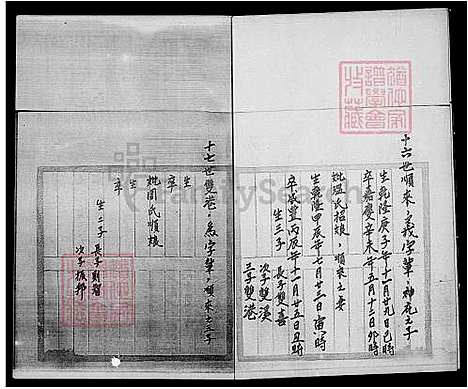 十六世順來，義字輩，神花之子
生乾隆庚子年十一月廿九日巳時
卒嘉慶辛未年五月十三日卯時
妣溫氏招娘，順來之妻
生乾隆甲辰年七月廿三日寅時
卒咸豐丙辰年十一月廿五日丑時
生三子 長子雙喜
次子雙漢
三子雙港
十七世雙港，為字輩，順來之子
生
卒
妣周氏順娘
生
卒
生二子 長子則智
次子振聊
FamilySearch